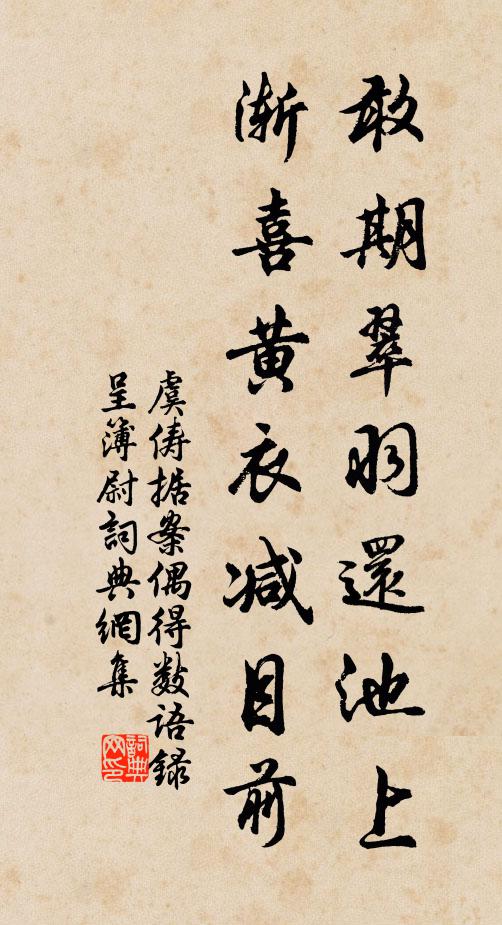 敢期翠羽還池上
漸喜黄衣减目前
虞儔据案偶得数语録
呈簿尉詞典網集
詞典网印